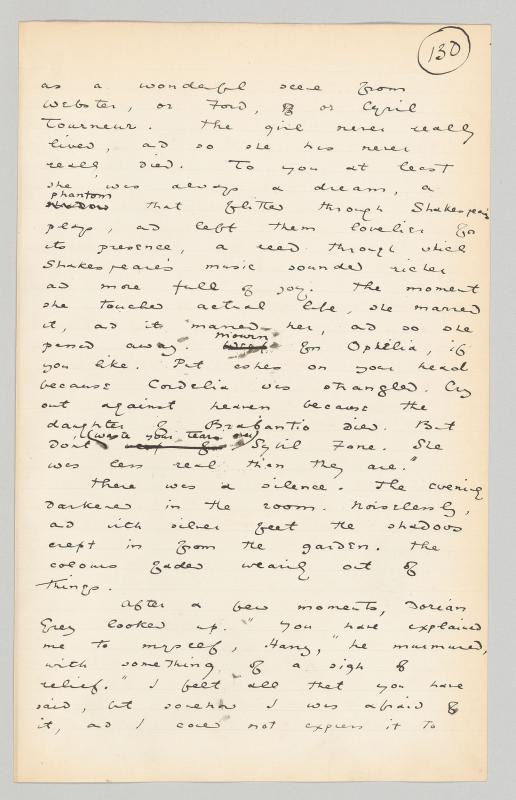 130
as a wonderful scene from
Webster, or Ford, or Cyril
Tourneur. The girl never really
lived, and so she has never
really died. To you at least
she was always a dream, a
phantom
shadow that flitted through Shakespeare's
plays, and left them lovelier for
its presence, a reed through which
Shakespeare's music sounded richer
and more full of joy. The moment
she touched actual life, she marred
it, and it marred her, and so she
mourn
passed away. weep for Ophelia, if
you like. Put ashes on your head
because Cordelia was strangled. Cry
out against heaven because the
daughter of Brabantio died. But
(waste your tears over)
don't weep for Sybil Vane. She
was less real than they are."
There was a silence. The evening
darkened in the room. Noiselessly,
and with silver feet the shadows
crept in from the garden. The
colours faded wearily out of
things.
After a few moments, Dorian
Gray looked up. "You have explained
me to myself, Harry," he murmured,
with something of a sigh of
relief. "I felt all that you have
said, but somehow I was afraid of
it, and I could not express it to